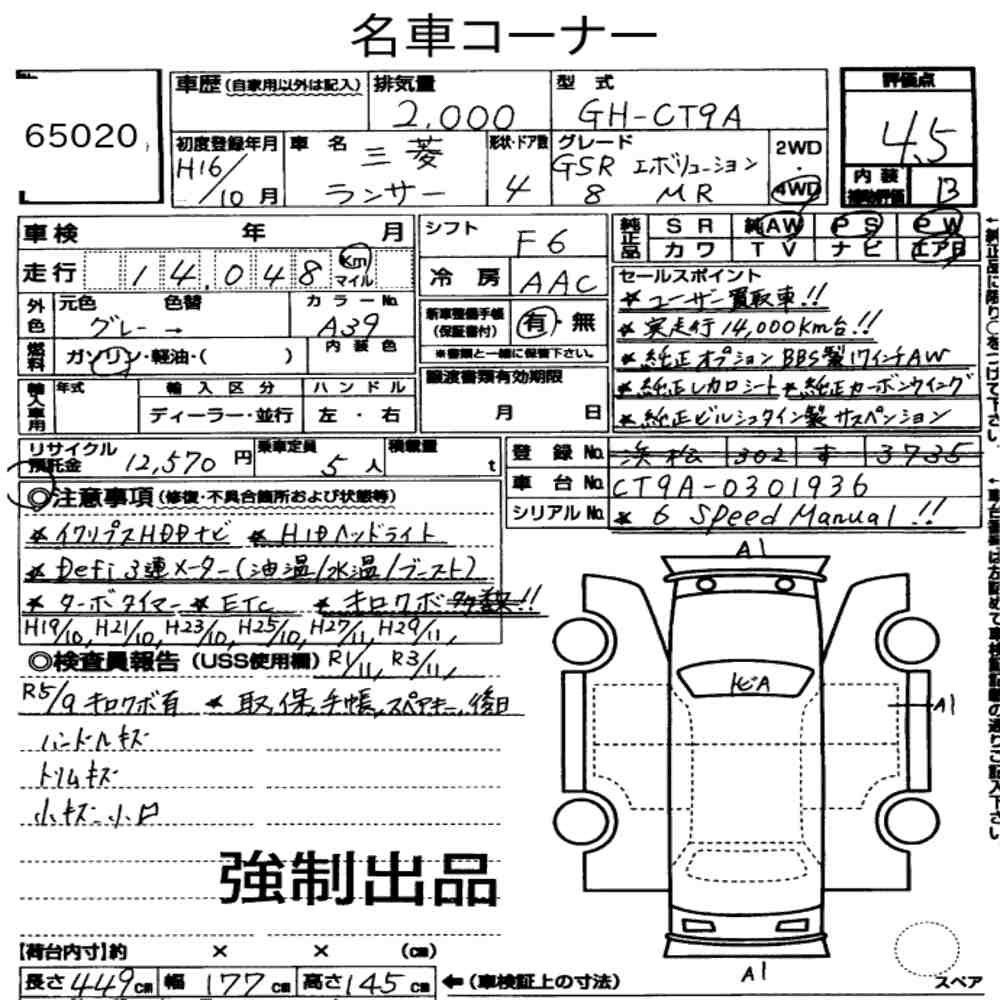 名車コーナー
65020
車歴 (自家用以外は記入) 排気量 2,000 型式 GH-CT9A
評価点 4.5
初度登録年月 H16/10月 車名 三菱 ランサー 形状・ドア数 4 グレード GSR エボリューション 8 MR 2WD・4WD
内装 補助評価 B
車検 年 月
走行 14,048 Km マイル
シフト F6
冷房 AAC
純正品 SR 純AW PS PW
カワ TV ナビ エアB
外色 元色 グレー → 色替 カラーNo. A39
燃料 ガソリン・軽油・( ) 内装色
新車整備手帳 (保証書付) 有・無
※書類と一緒に保管下さい。
輸入車用 年式 輸入区分 ディーラー・並行 ハンドル 左・右
譲渡書類有効期限 月 日
セールスポイント
★ユーザー買取車!!
★実走行14,000Km台!!
★純正オプションBBS製17インチAW
★純正レカロシート ★純正カーボンウイング
★純正ビルシュタイン製サスペンション
リサイクル預託金 12,570円 乗車定員 5人 積載量 t
登録No. 浜松 302 す 3735
車台No. CT9A-0301936
シリアルNo. ★6 Speed Manual!!
◎注意事項 (修復・不具合箇所および状態等)
★イクリプスHDDナビ ★HIDヘッドライト
★Defi 3連メーター(油温/水温/ブースト)
★ターボタイマー ★ETC ★キロクボ多数!!
H19/10, H21/10, H23/10, H25/10, H27/11, H29/11,
◎検査員報告 (USS使用欄) R1/11, R3/11,
R5/9 キロクボ有 ★取,保,手帳,スペアキー,後日
ハンドルキズ
トリムキズ
小キズ、小凹
強制出品
A1
トビA
A1
A1
スペア
【荷台内寸】約 × × (cm)
長さ 449cm 幅 177cm 高さ 145cm ←(車検証上の寸法)
←純正品に限り○をつけて下さい。